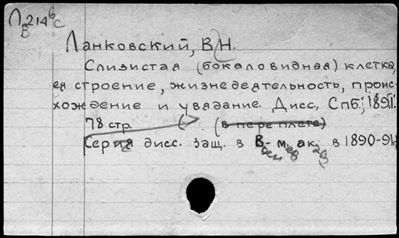 Л 214 6/c
в
Ланковский, В.Н.
Слизистая (бокаловидная) клетка,
ея строение, жизнедеятельность, проис-
хождение и увядание. Дисс., Спб., 1891.
78 стр. (в переплете)
Серия дисс. защ. в В.-м. ак. в 1890-91